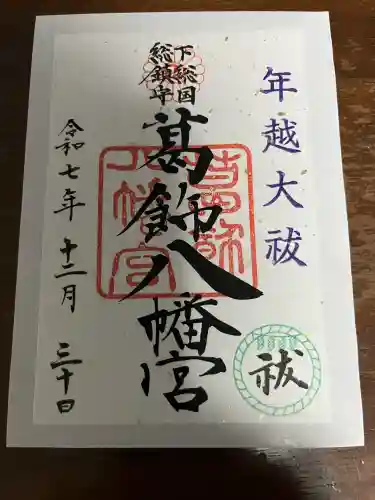 年越大祓
下総国
総鎮守
葛飾八幡宮
令和七年 十二月 三十日
祓
葛飾
八幡宮